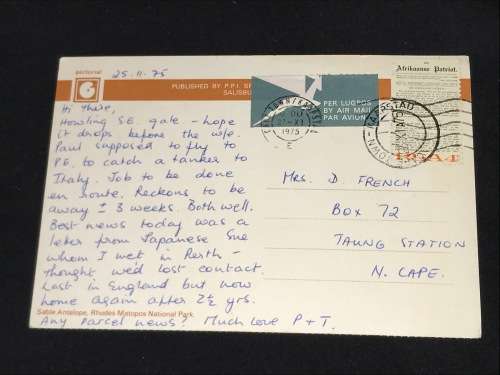 national
25.11.75
PUBLISHED BY P.P.I.
SALISBU
Hi there,
Howling SE gale - hope
it drops before the wfe.
Paul supposed to fly to
P.E. to catch a tanker to
Italy. Job to be done
en route. Reckons to be
away ± 3 weeks. Both well.
Best news today was a
letter from Japanese Sue
whom I met in Perth -
thought we'd lost contact.
Last in England but now
home again after 2½ yrs.
Any parcel news? Much love P+T.
Sable Antelope, Rhodes Matopos National Park.
PER LUGPOS
BY AIR MAIL
PAR AVION
1975
E
Afrikaanse Patriot.
KAAPSTAD
MRS. D. FRENCH
BOX 72
TAUNG STATION
N. CAPE.